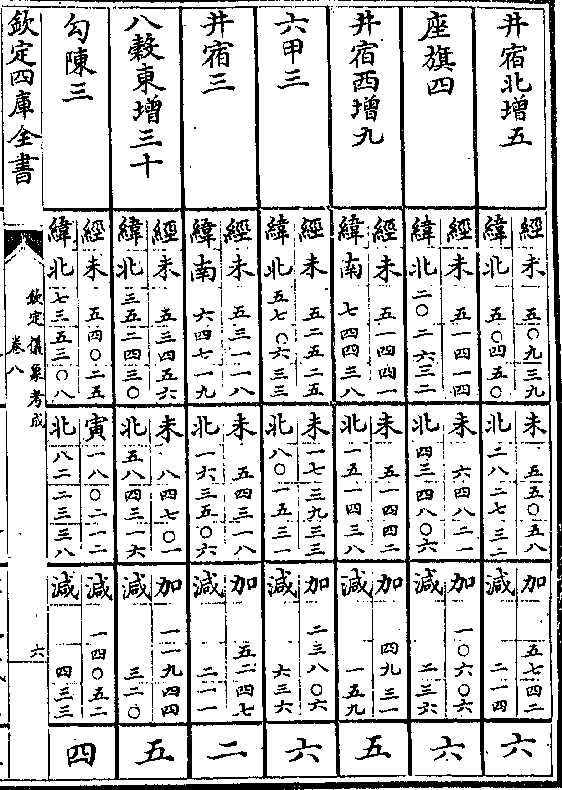 井宿北增五
經未 五〇九三九
緯北 五〇四五〇
未 五五〇五八
北 二八二七三二
加 五七四二
減 二一四
六
座旗四
經未 五一四一四
緯北 二〇二六三二
未 六四八二一
北 四三四八〇六
加 一〇六〇六
減 二三六
六
井宿西增九
經未 五一四四一
緯南 七四四三八
未 五一四四二
北 一五一四三八
加 四九三一
減 一五九
五
六甲三
經未 五二五二五
緯北 五七〇六三三
未 一七三九三三
北 八〇一五三一
加 二三八〇六
減 六三六
六
井宿三
經未 五三一一八
緯南 六四七一九
未 五四三一八
北 一六三五〇六
加 五二四七
減 二二一
二
八穀東增三十
經未 五三四五六
緯北 三五二四三〇
未 八四七〇一
北 五八四三一六
加 一一九四四
減 三二〇
五
勾陳三
經未 五四〇二五
緯北 七三五三〇八
寅 一八〇二一二
北 八二二三三八
減 一四〇五二
減 四三三
四
欽定四庫全書
欽定儀象考成
卷八
六